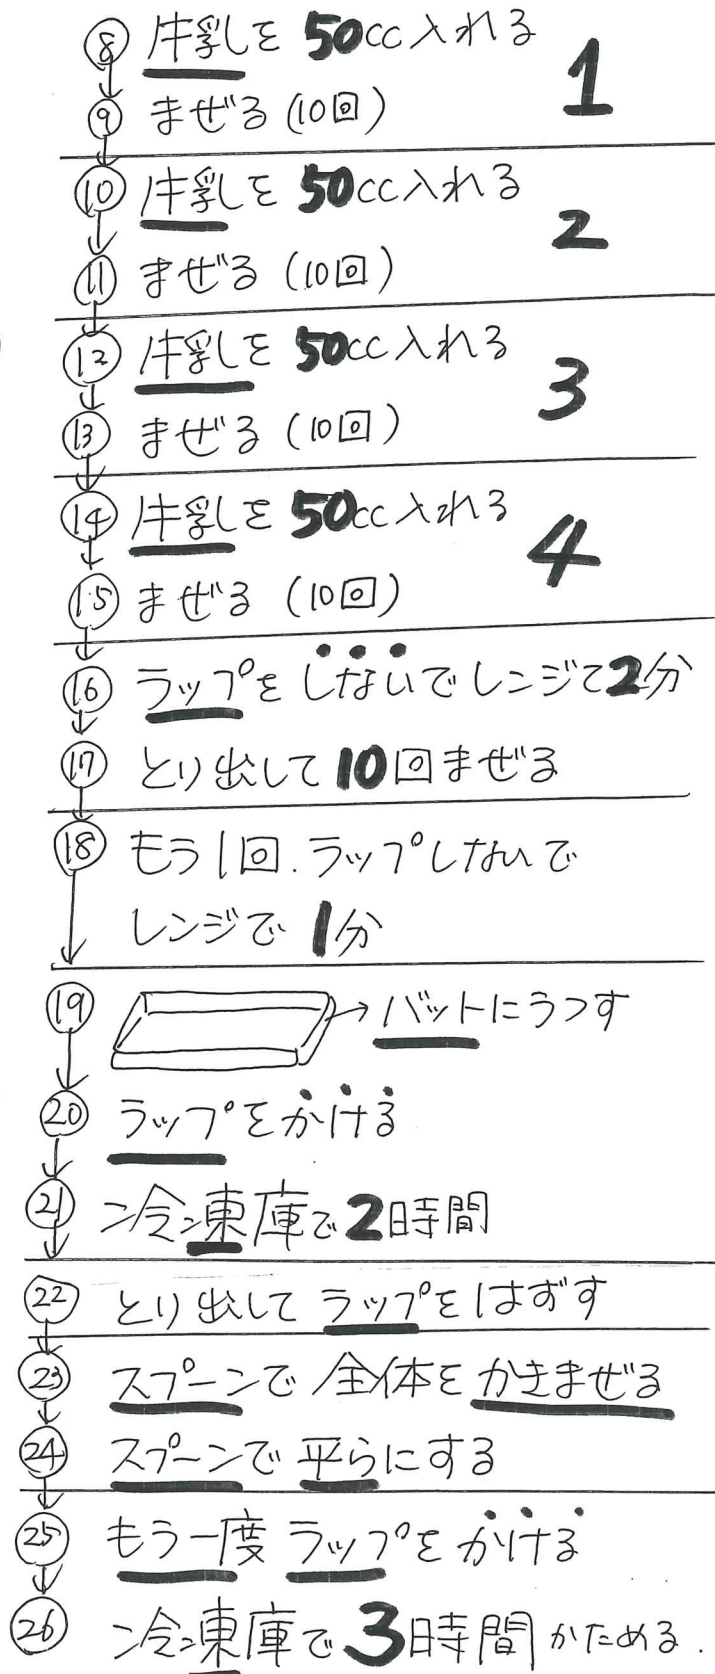 ⑧ 牛乳を50cc入れる
1
⑨ まぜる(10回)
⑩ 牛乳を50cc入れる
2
⑪ まぜる(10回)
⑫ 牛乳を50cc入れる
3
⑬ まぜる(10回)
⑭ 牛乳を50cc入れる
4
⑮ まぜる(10回)
⑯ ラップをしないでレンジで2分
⑰ とり出して10回まぜる
⑱ もう1回.ラップしないで
レンジで1分
⑲ →バットにうつす
⑳ ラップをかける
㉑ 冷凍庫で2時間
㉒ とり出してラップをはずす
㉓ スプーンで全体をかきまぜる
㉔ スプーンで平らにする
㉕ もう一度ラップをかける
㉖ 冷凍庫で3時間かためる.